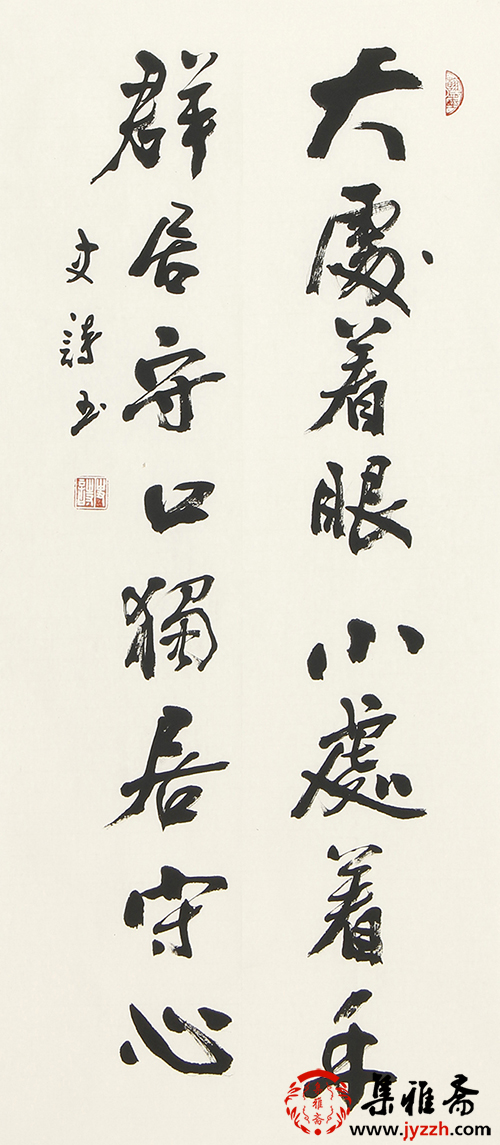 大處着眼小處着手
群居守口獨居守心
文詩书
集雅斋
www.jyzzh.com